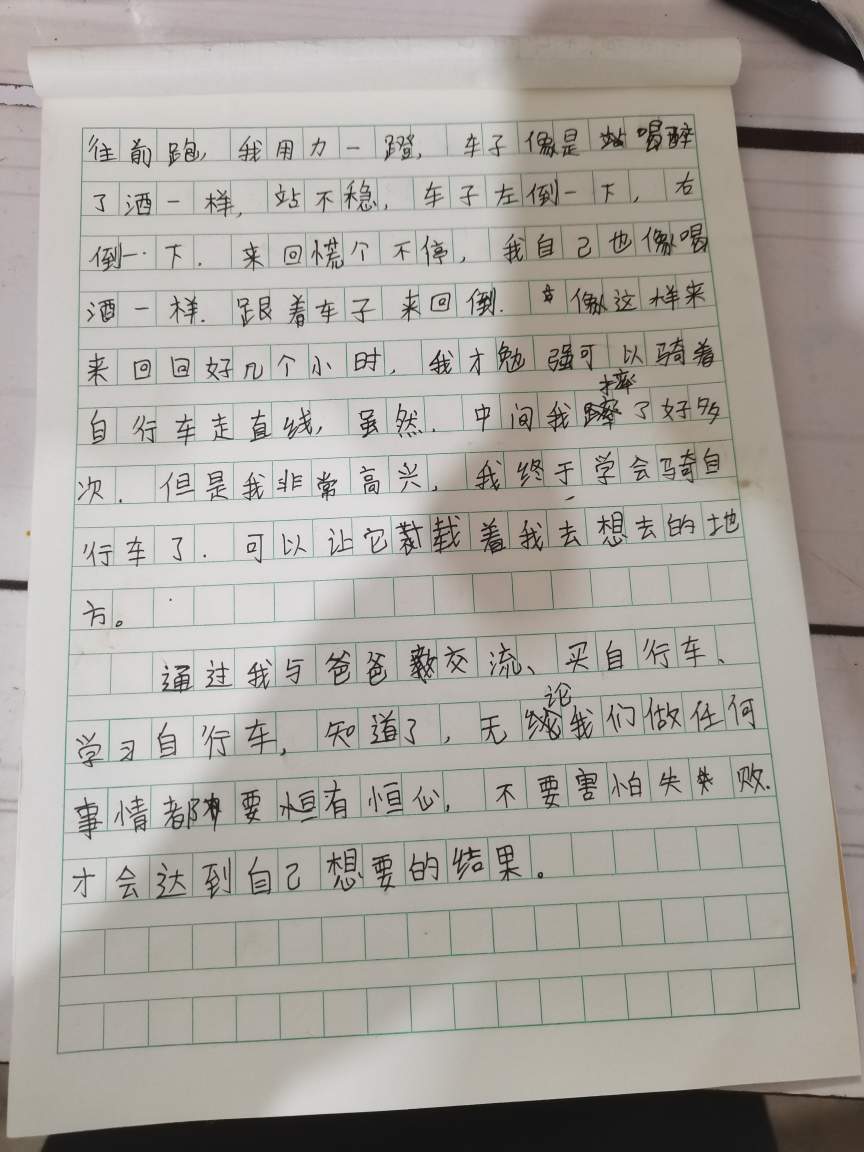 往前跑,我用力一蹬,车子像是喝醉
了酒一样,站不稳,车子左倒一下,右
倒一下.来回慌个不停,我自己也像喝
酒一样.跟着车子来回倒.像这样来
来回回好几个小时,我才勉强可以骑着
自行车走直线,虽然.中间我摔了好多
次.但是我非常高兴,我终于学会骑自
行车了.可以让它载着我去想去的地
方。
通过我与爸爸交流、买自行车、
学习自行车,知道了,无论我们做任何
事情都要恒有恒心,不要害怕失败.
才会达到自己想要的结果。